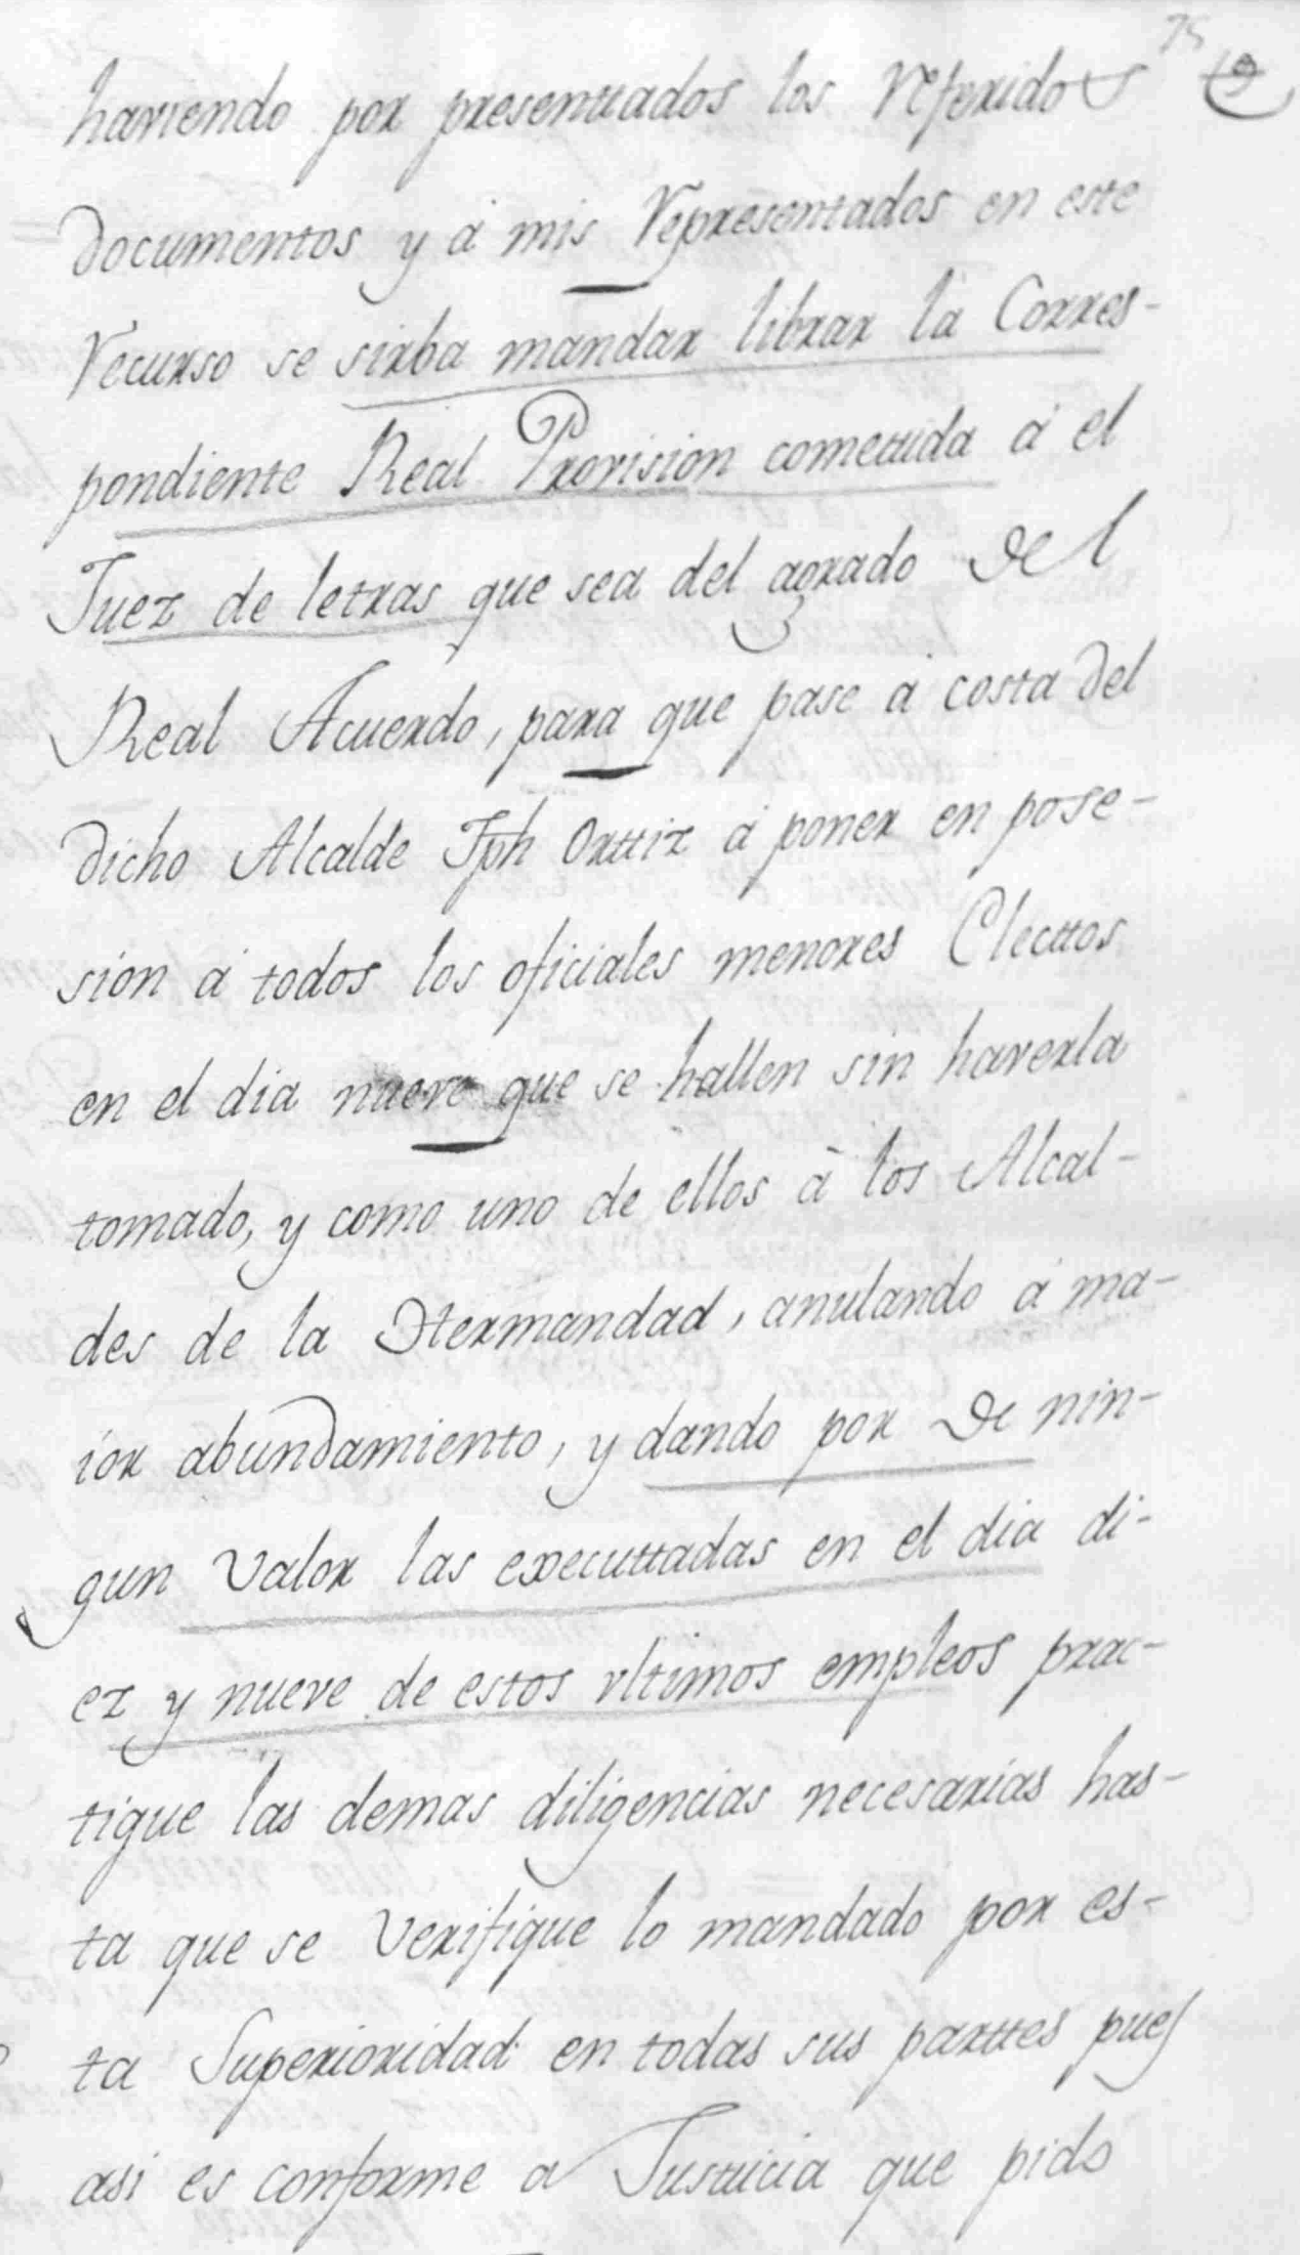 75 19
haviendo por presenttados los Referidos
documentos y á mis Representados en este
Recurso se sirba mandar librar la Corres-
pondiente Real Provision comettida á el
Juez de letras que sea del agrado del
Real Acuerdo, para que pase á costa del
dicho Alcalde Jph Orttiz á poner en pose-
sion á todos los oficiales menores Electtos
en el dia nueve que se hallen sin haverla
tomado, y como uno de ellos á los Alcal-
des de la Hermandad, anulando á ma-
ior abundamiento, y dando por de nin-
gun valor las executtadas en el dia di-
ez y nueve de estos vltimos empleos prac-
tique las demas diligencias necesarias has-
ta que se verifique lo mandado por es-
ta Superioridad en todas sus parttes pues
asi es conforme a Justticia que pido